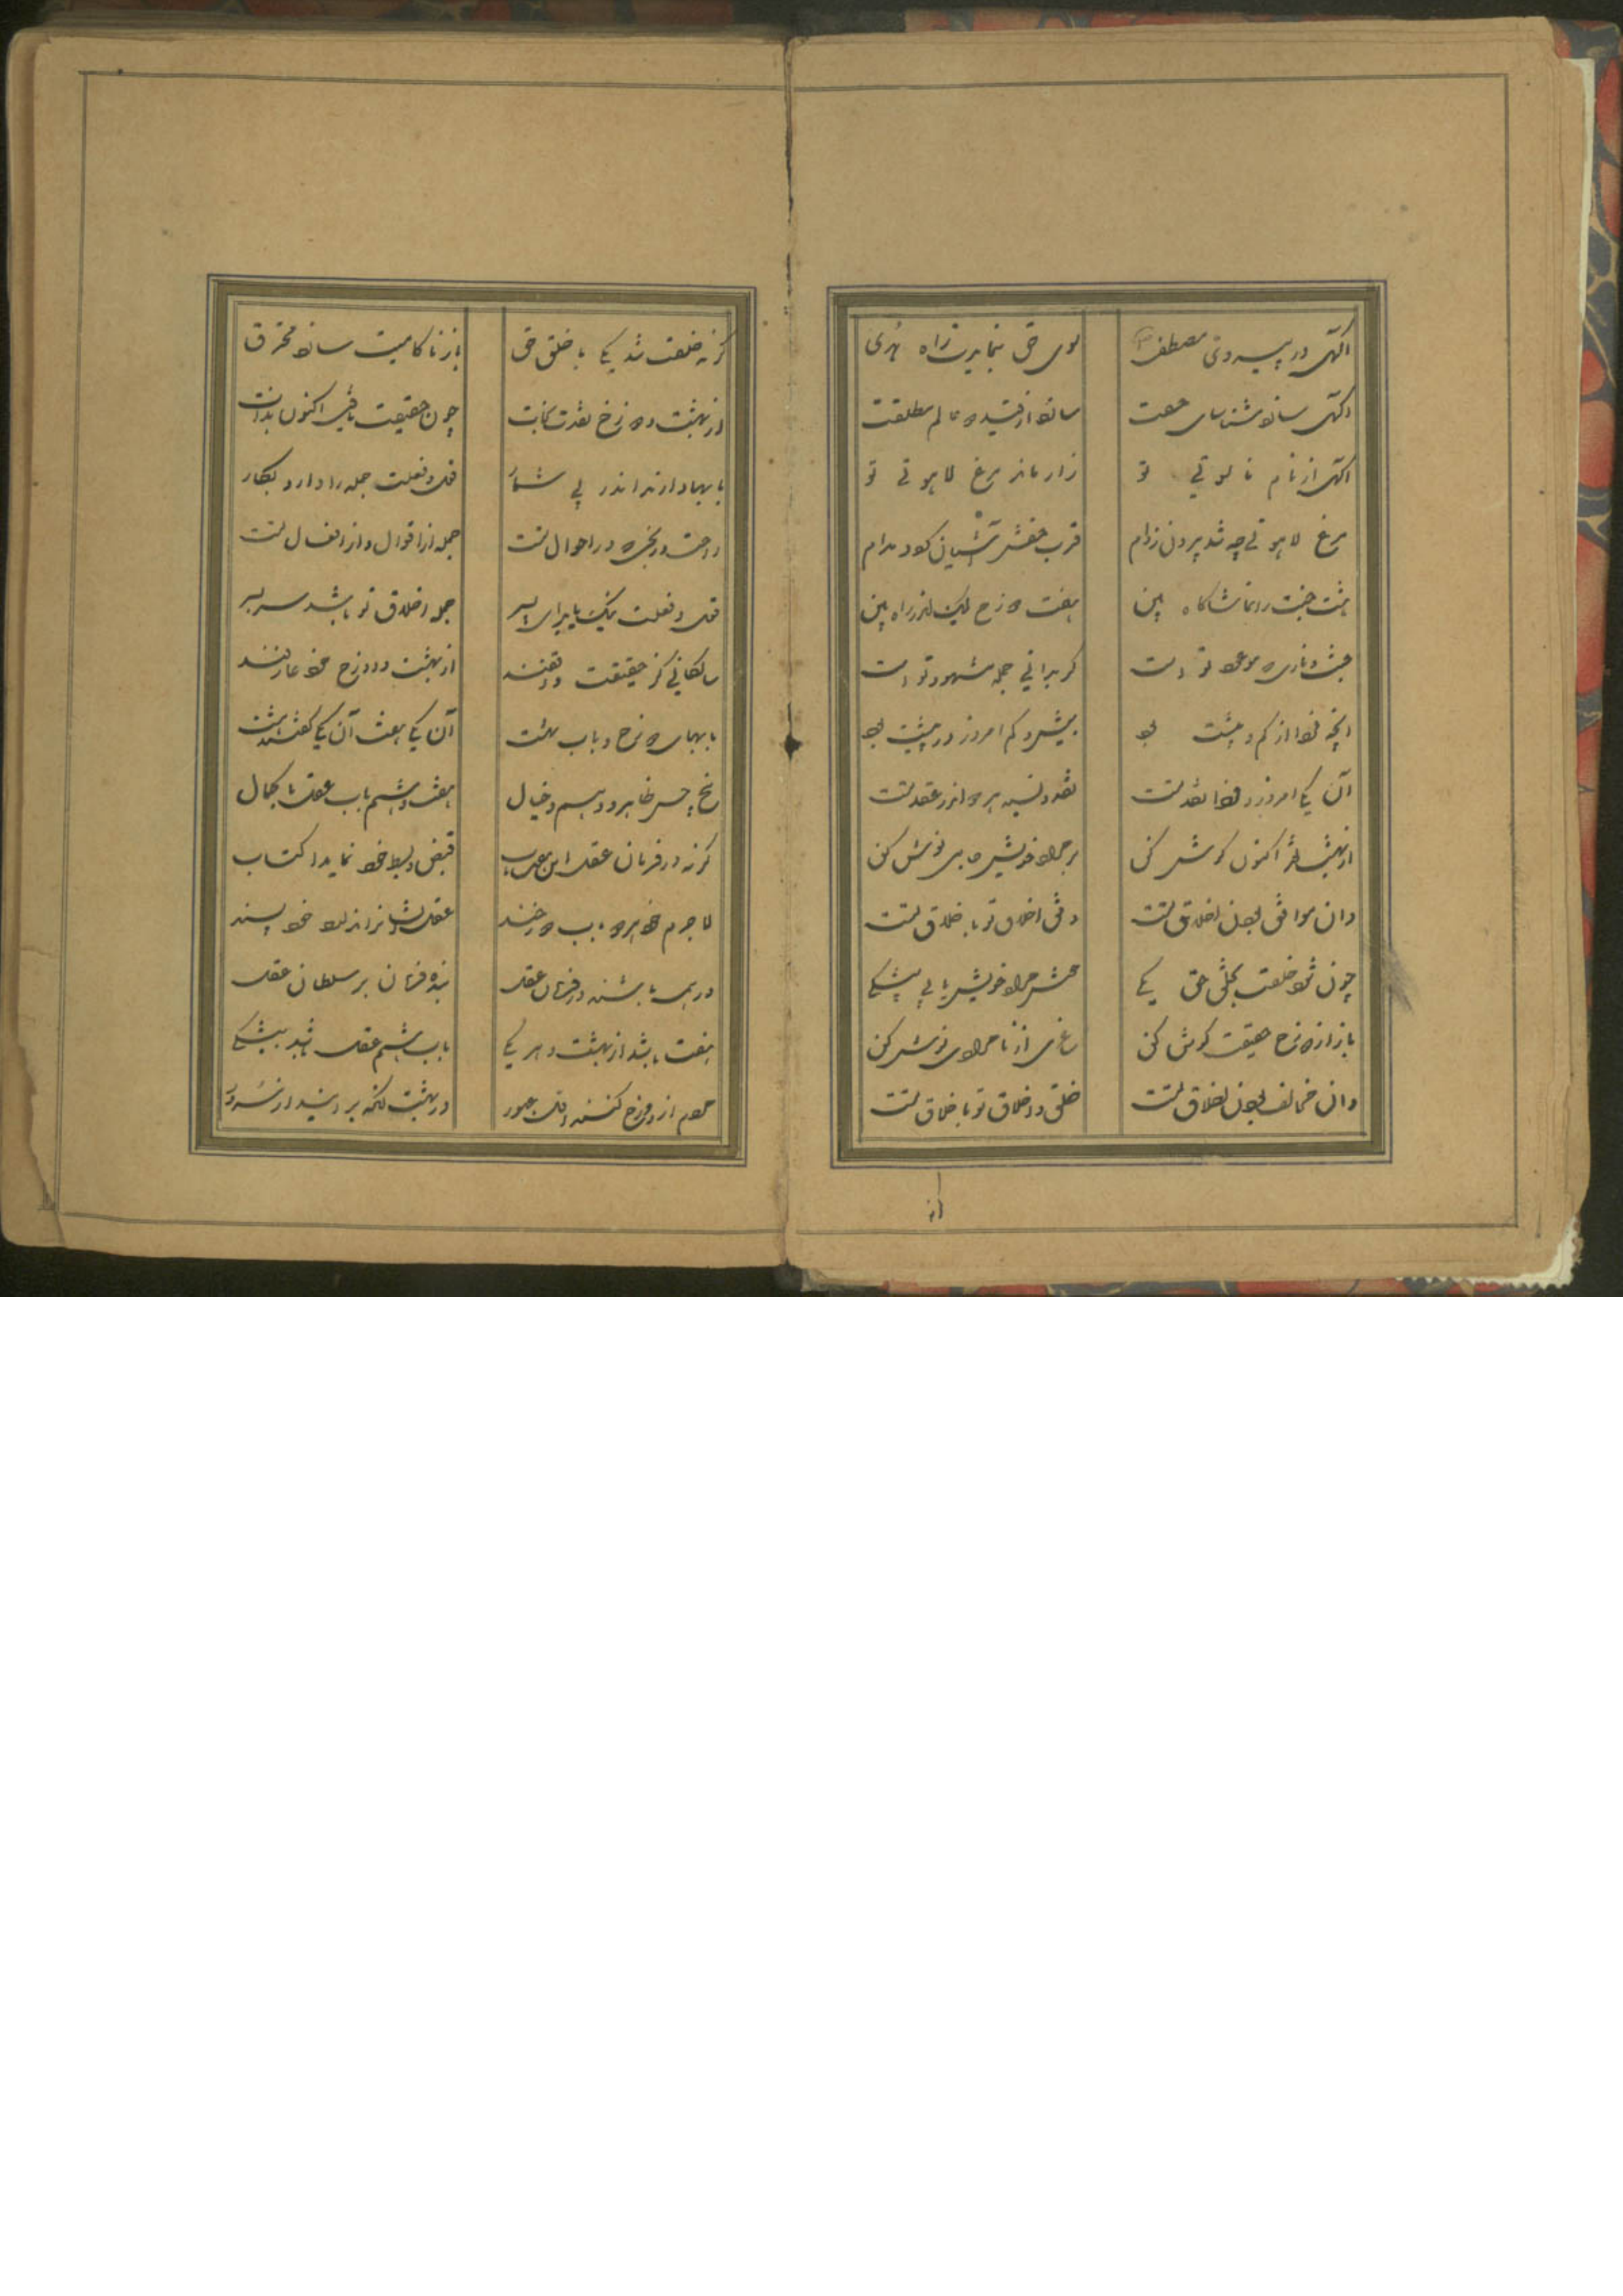 آگهی در پیروی مصطفی سوی حق بنمایدت راه هدی
آگهی سازد شناسای حقت سازد از قید دو عالم مطلقت
آگهی از دام ناسوتی تو وارهاند مرغ لاهوتی تو
مرغ لاهوتی چه شد بیرون ز دام قرب حقش آشیان گردد مدام
هشت جنت را تماشاگاه بین هفت دوزخ لیک اندر راه بین
جنت و ناری که موعود تو است گر بدانی جمله مشهود تو است
آنچه فردا از کم و بیشت بود بیش و کم امروز در پیشت بود
آن یکی امروز و فردا نقد تست نقد و نسیه هر دو اندر عقد تست
از بهشت نقد اکنون گوش کن بر مراد خویش جامی نوش کن
وان موافق بودن اخلاق تست وفق اخلاق تو با خلاق تست
چون شود خلقت بخلق حق یکی حشر مراد خویش یابی بیشکی
باز از دوزخ حقیقت گوش کن ساغری از نامرادی نوش کن
وان مخالف بودن اخلاق تست خلق و اخلاق تو با خلاق تست
گر نه خلقت شد یکی با خلق حق باز ناکامیت سازد محترق
از بهشت و دوزخ نقدت نجات چون حقیقت یافتی اکنون بدانت
بابها دارند اندر پی شمار قول و فعلت جمله را دارد بکار
راحت و رنجی که در احوال تست جمله از اقوال و از افعال تست
قول و فعلت نیک یا بد ای پسر جمله اخلاق تو باشد سر بسر
سالکانی کز حقیقت واقفند از بهشت و دوزخ خود عارفند
بابهای دوزخ و باب بهشت آن یکی هفت آن یکی گفتند هشت
پنج حس ظاهر و وهم و خیال هفت و هشتم باب عقل با کمال
گر نه در فرمان عقل این هفت باب قبض و بسط خود نماید اکتساب
لاجرم خود هر دو باب دوزخند
ور همه باشند در فرمان عقل بنده فرمان بر سلطان عقل
هفت باشد از بهشت و هر یکی باب هشتم عقل باشد بیشکی
مردم از دوزخ کنند اول عبور در بهشت آنگه برآیند از سرور
از